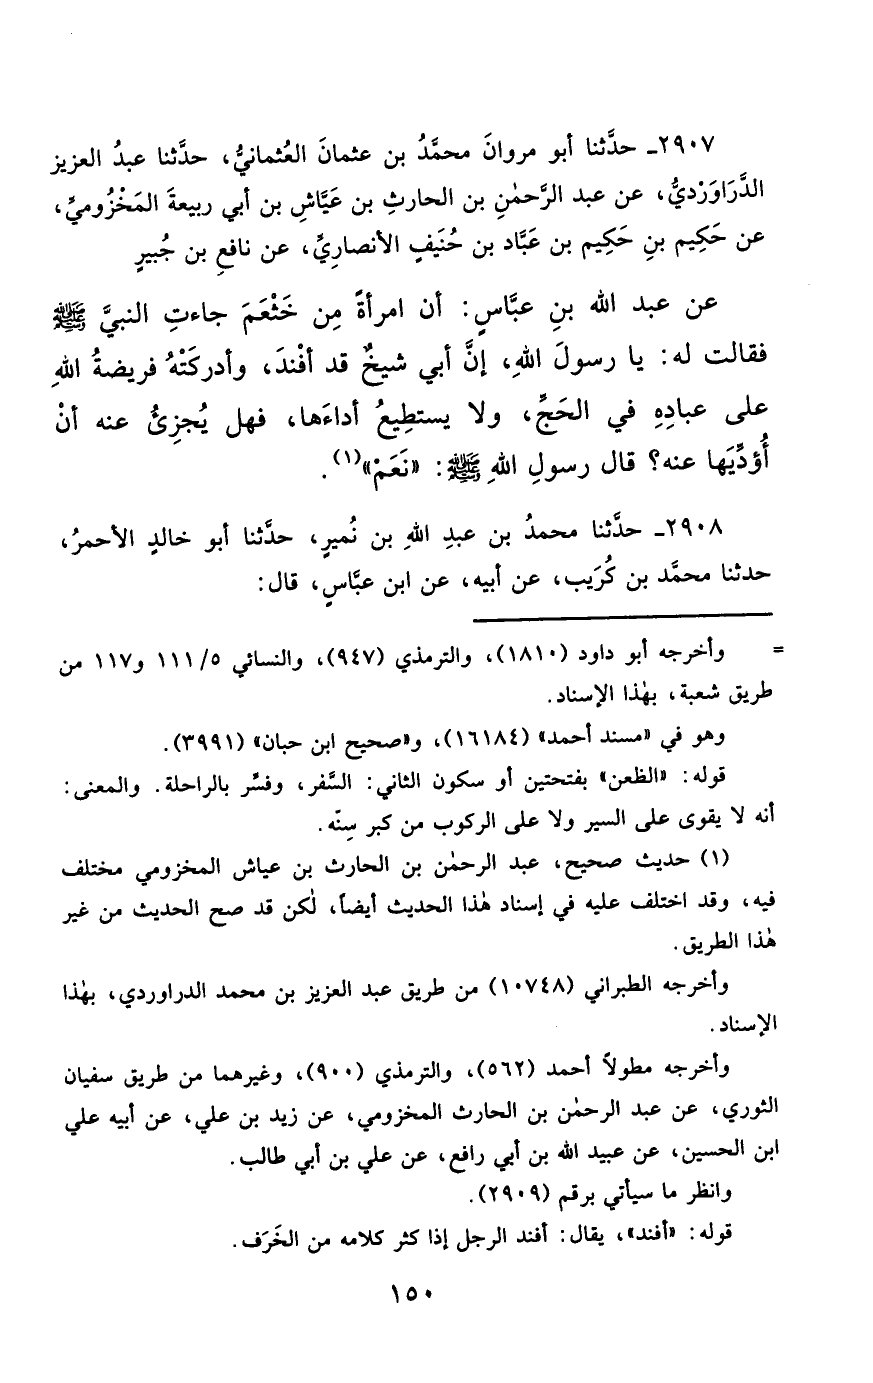 ٢٩٠٧ـ حدَّثنا أبو مروانَ محمَّدُ بن عثمانَ العُثمانيُّ، حدَّثنا عبدُ العزيز
الدَّرَاوَرْديُّ، عن عبد الرَّحمٰنِ بن الحارثِ بن عَيَّاشِ بن أبي ربيعةَ المَخْزُوميِّ،
عن حَكِيم بنِ حَكِيم بن عَبَّاد بن حُنَيفٍ الأنصاريِّ، عن نافعِ بن جُبيرٍ
عن عبد الله بنِ عبَّاسٍ: أن امرأةً مِن خَثْعَمَ جاءتِ النبيَّ ﷺ
فقالت له: يا رسولَ اللهِ، إنَّ أبي شيخٌ قد أفْندَ، وأدركَتْهُ فريضةُ اللهِ
على عبادِهِ في الحَجِّ، ولا يستطِيعُ أداءَها، فهل يُجزِئُ عنه أنْ
أُؤدِّيَها عنه؟ قال رسولِ اللهِ ﷺ: «نَعَمْ»(١).
٢٩٠٨ـ حدَّثنا محمدُ بن عبدِ اللهِ بن نُميرٍ، حدَّثنا أبو خالدٍ الأحمرُ،
حدثنا محمَّد بن كُرَيب، عن أبيه، عن ابن عبَّاسٍ، قال:
= وأخرجه أبو داود (١٨١٠)، والترمذي (٩٤٧)، والنسائي ١١١/٥ و١١٧ من
طريق شعبة، بهٰذا الإسناد.
وهو في «مسند أحمد» (١٦١٨٤)، و«صحيح ابن حبان» (٣٩٩١).
قوله: «الظعن» بفتحتين أو سكون الثاني: السَّفر، وفسِّر بالراحلة. والمعنى:
أنه لا يقوى على السير ولا على الركوب من كبر سِنّه.
(١) حديث صحيح، عبد الرحمٰن بن الحارث بن عياش المخزومي مختلف
فيه، وقد اختلف عليه في إسناد هٰذا الحديث أيضاً، لٰكن قد صح الحديث من غير
هٰذا الطريق.
وأخرجه الطبراني (١٠٧٤٨) من طريق عبد العزيز بن محمد الدراوردي، بهٰذا
الإسناد.
وأخرجه مطولاً أحمد (٥٦٢)، والترمذي (٩٠٠)، وغيرهما من طريق سفيان
الثوري، عن عبد الرحمٰن بن الحارث المخزومي، عن زيد بن علي، عن أبيه علي
ابن الحسين، عن عبيد الله بن أبي رافع، عن علي بن أبي طالب.
وانظر ما سيأتي برقم (٢٩٠٩).
قوله: «أفند»، يقال: أفند الرجل إذا كثر كلامه من الخَرَف.
١٥٠